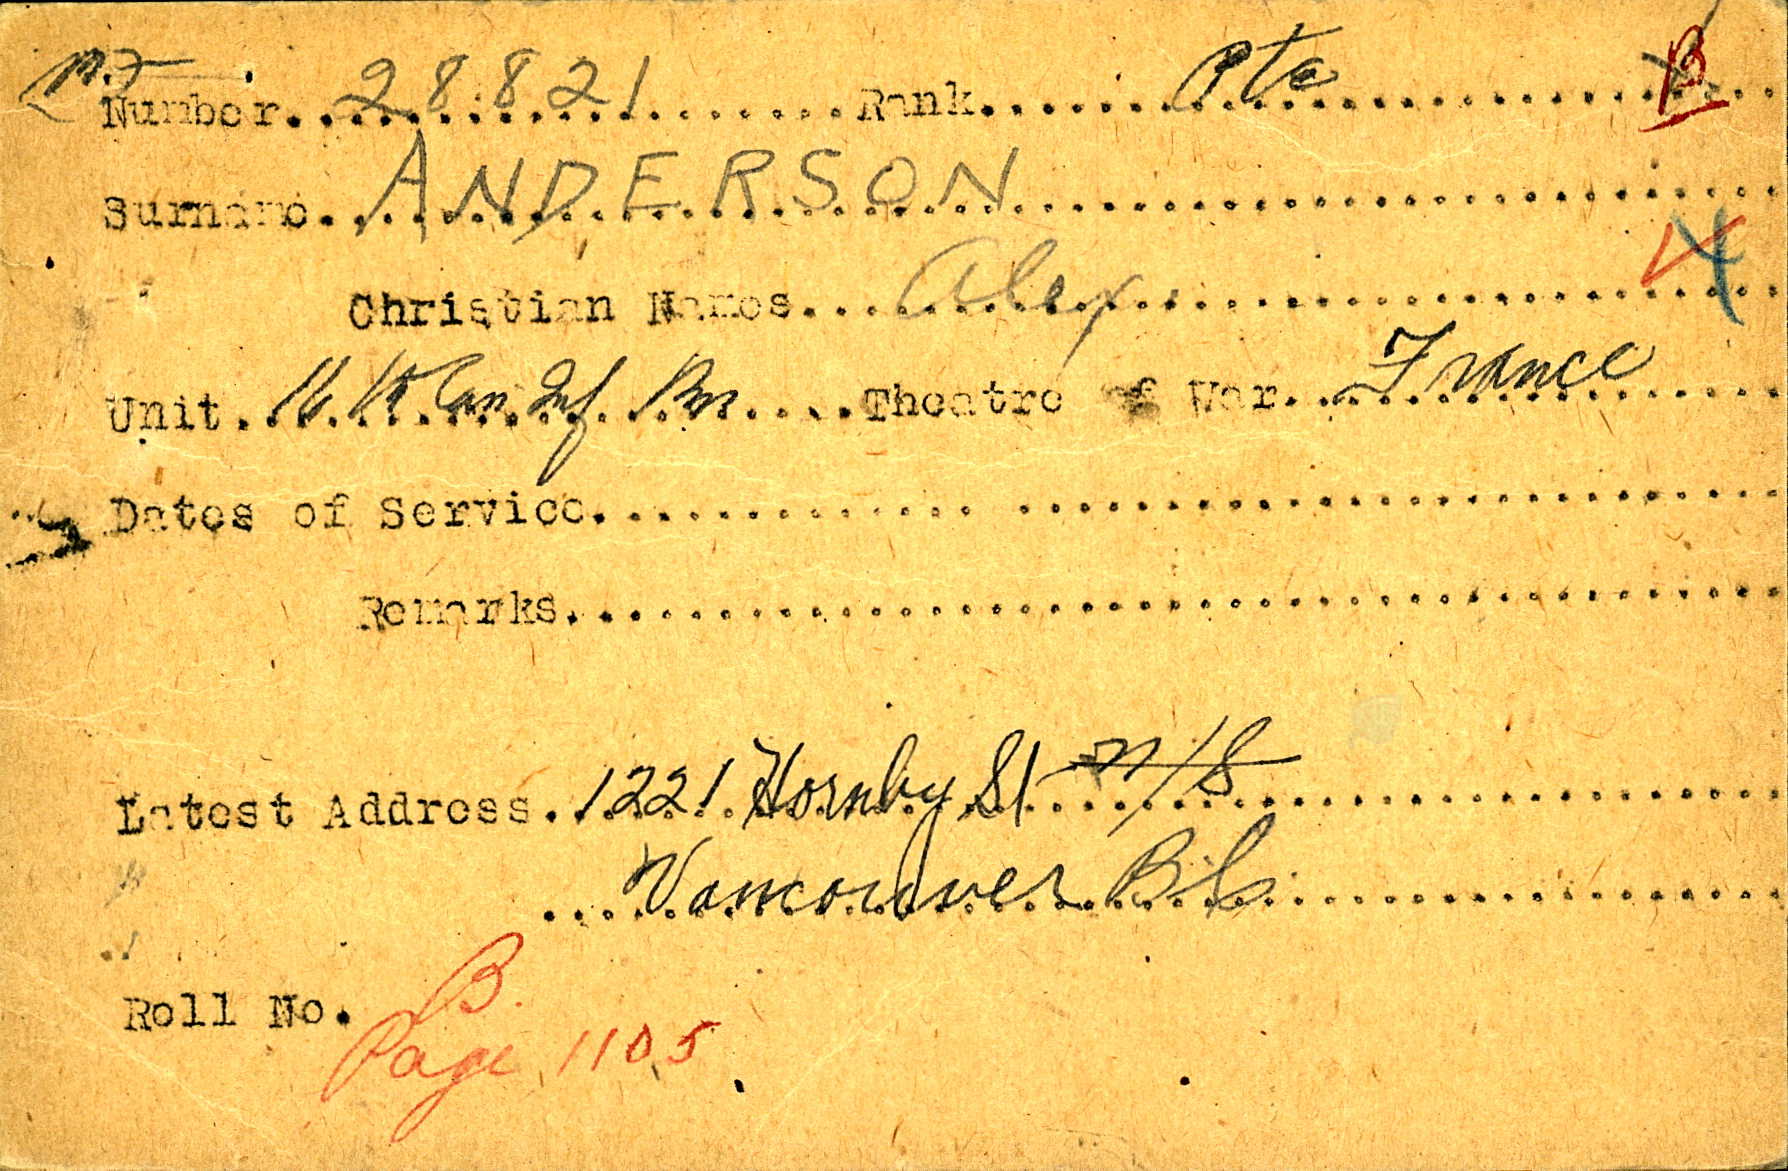 Number 28821 Rank Pte B
Surname ANDERSON
Christian Names Alex 4
Unit 16th Can Inf Bn Theatre of War France
Dates of Service
Remarks
Latest Address 1221 Hornby St n/s
Vancouver B.C.
Roll No. B.
Page 1105